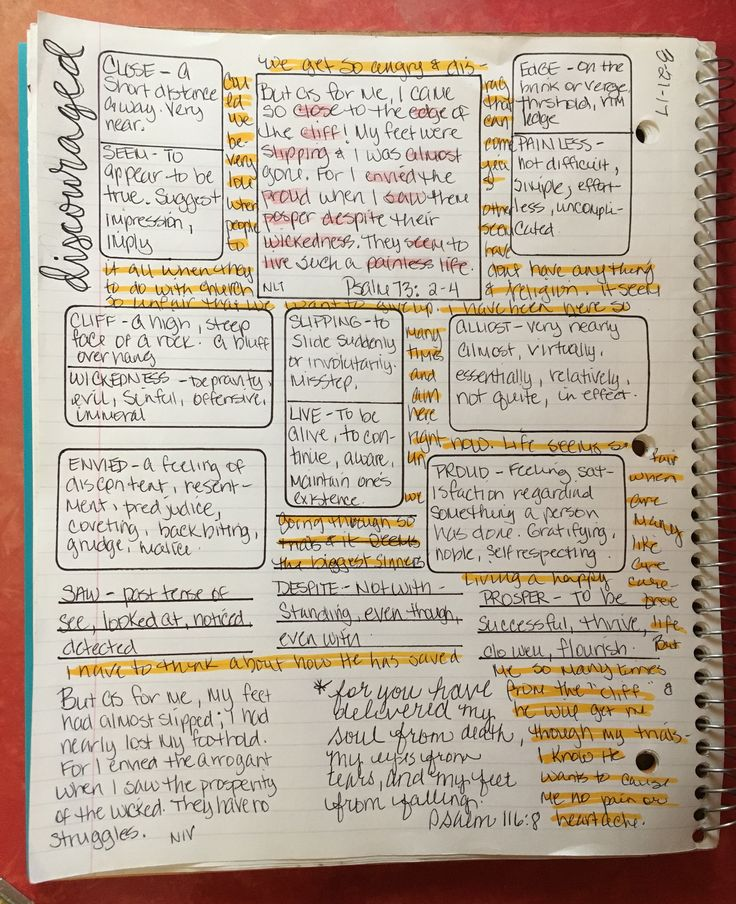 discouraged
8-21-17
CLOSE - a
short distance
away. very
near.
SEEM - TO
appear to be
true. Suggest
impression,
imply
we get so angry & dis-
cou
ed we
be-
very
low
when
people
to
But as for me, I came
so close to the edge of
the cliff! My feet were
slipping & I was almost
gone. For I envied the
proud when I saw them
posper despite their
wickedness. They seem to
live such a painless life.
NLT Psalm 73: 2-4
rag
that
can
come
you
&
other
seem
have
EDGE - On the
brink or verge,
thrshold, rim
ledge
PAINLESS -
not difficult,
simple, effort-
less, uncompli-
cated.
it all when they
to do with church
so unfair that we
dont have anything
& religion. It seem
want to give up. I have been here so
CLIFF - a high, steep
face of a rock. a bluff
overhang
WICKEDNESS - Depravity,
evil, sinful, offensive,
immoral
SLIPPING - to
slide suddenly
or involutarily.
Misstep.
LIVE - To be
alive, to con-
tinue, aware,
maintain one's
existence.
many
times
and
am
here
right
un
we
ALMOST - very nearly
almost, virtually,
essentially, relatively,
not quite, in effect.
now. Life seems s
fair
when
are
many
like
care
care-
free
life
But
ENVIED - a feeling of
discontent, resent-
ment, predjudice,
coveting, backbiting,
grudge, malice.
going through so
trials & it seems
the biggest sinners
PROUD - Feeling sat-
isfaction regardind
something a person
has done. Gratifying,
noble, self respecting.
living a happy
SAW - past tense of
see, looked at, noticed,
detected
DESPITE - Not with -
standing, even though,
even with
PROSPER - TO be
successful, thrive,
do well, flourish.
I have to think about how He has saved
me so many times
from the "cliff" &
he will get me
though my trials-
I know He
wants to cause
me no pain or
heartache.
But as for me, my feet
had almost slipped; I had
nearly lost my foothold.
For I envied the arrogant
when I saw the prosperity
of the wicked. They have no
struggles. NIV
*for you have
delivered my
soul from death,
my eyes from
tears, and my feet
from falling.
Psalm 116:8